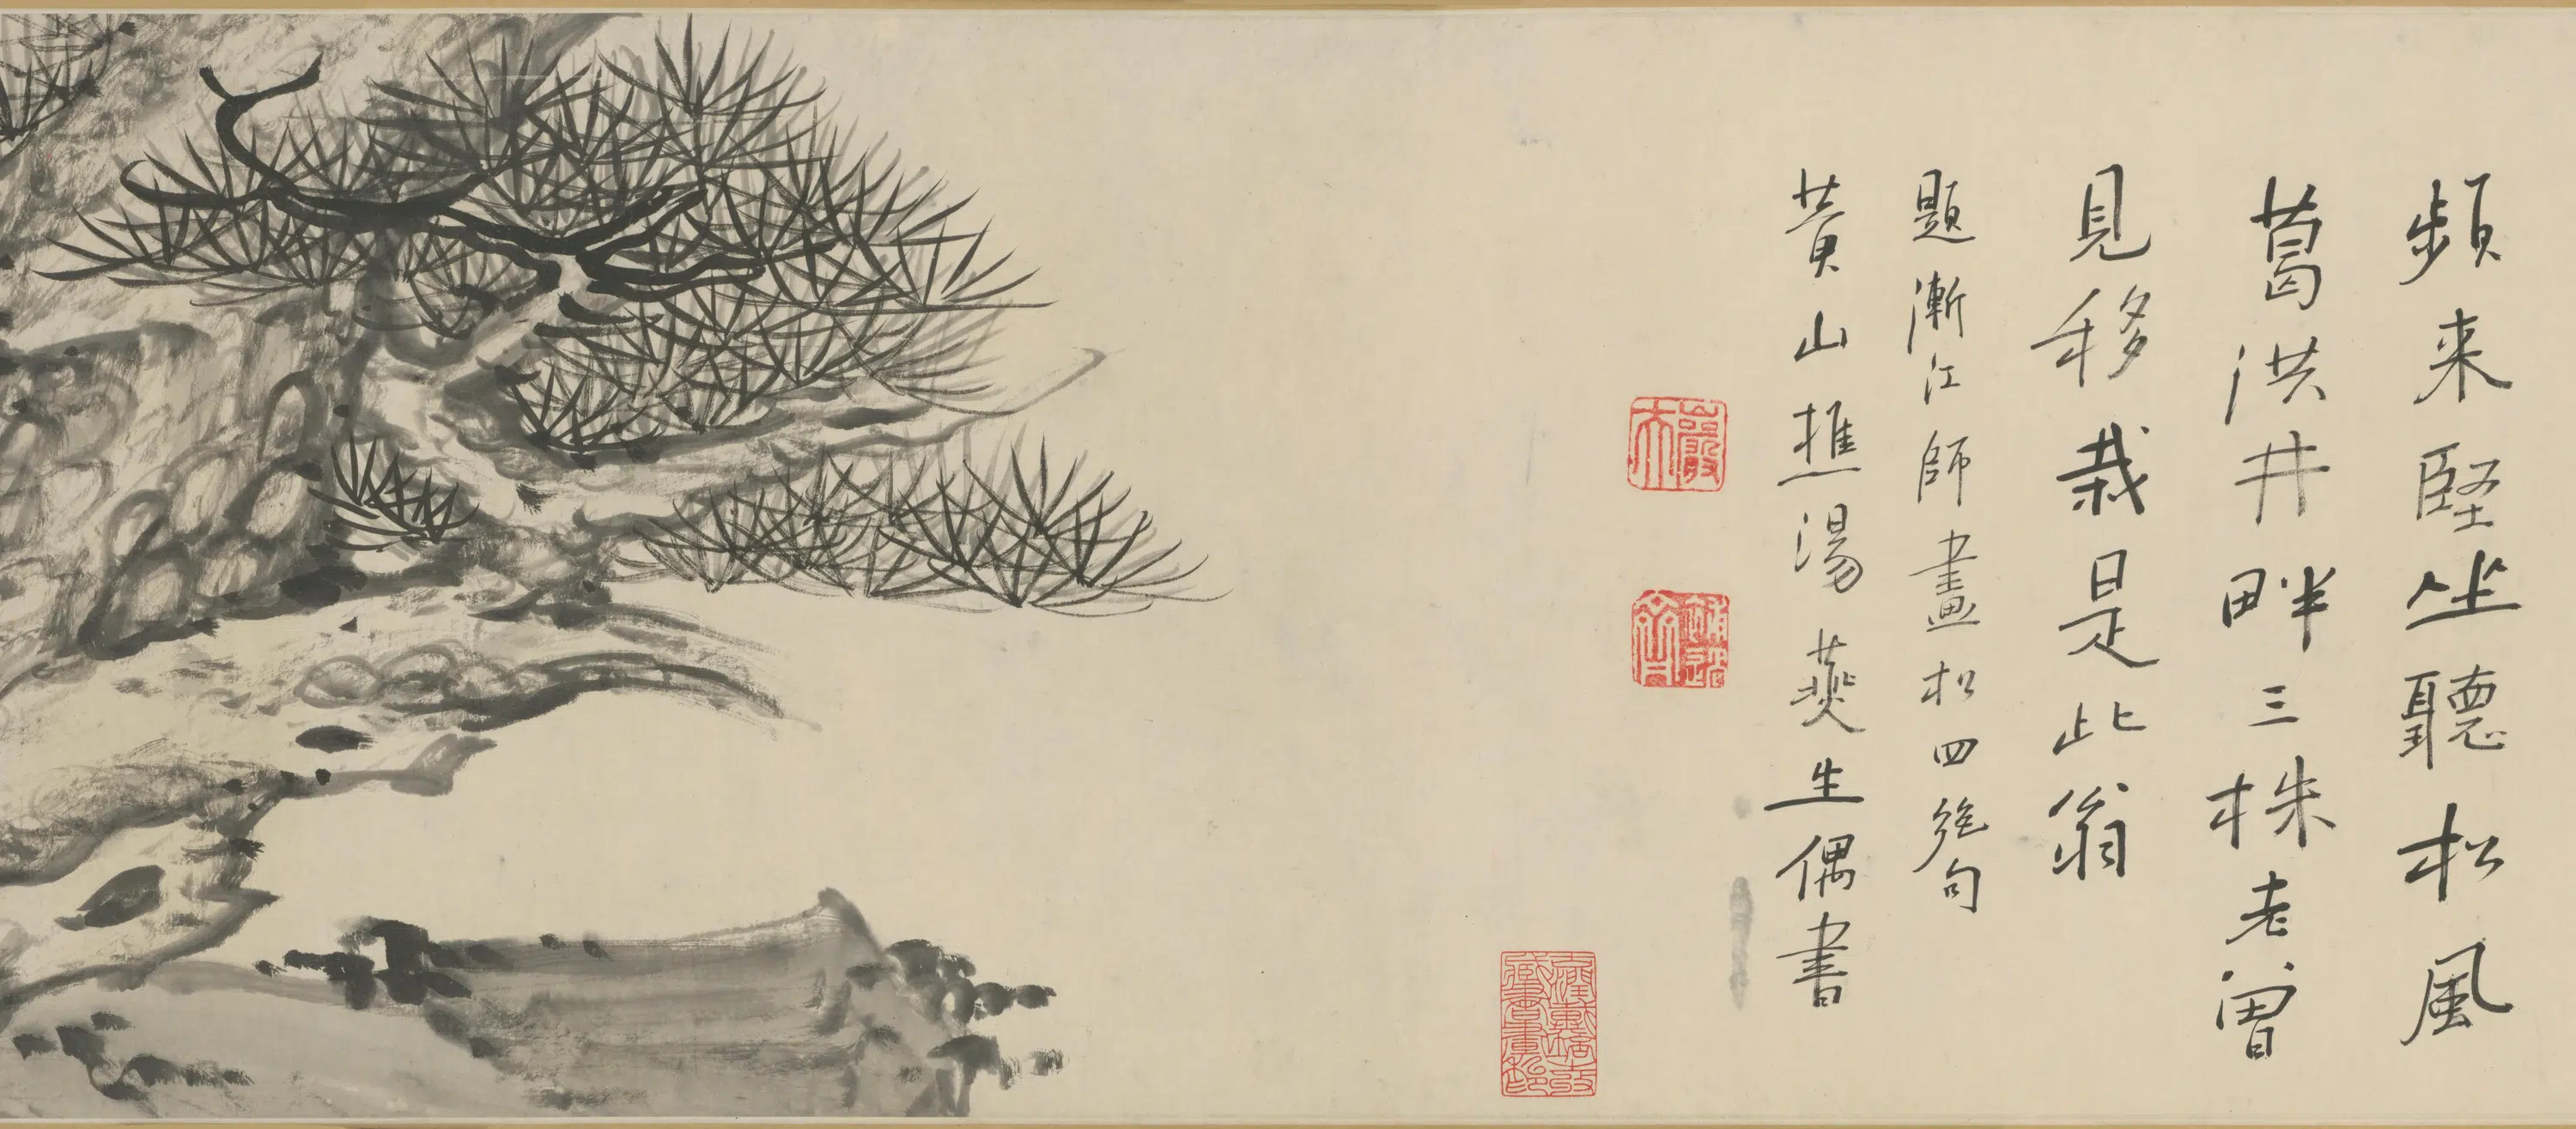 頻来堅坐聽松風
葛洪井畔三株老曾
見移栽是此翁
題漸江師畫松四絶句
黃山樵湯燕生偶書